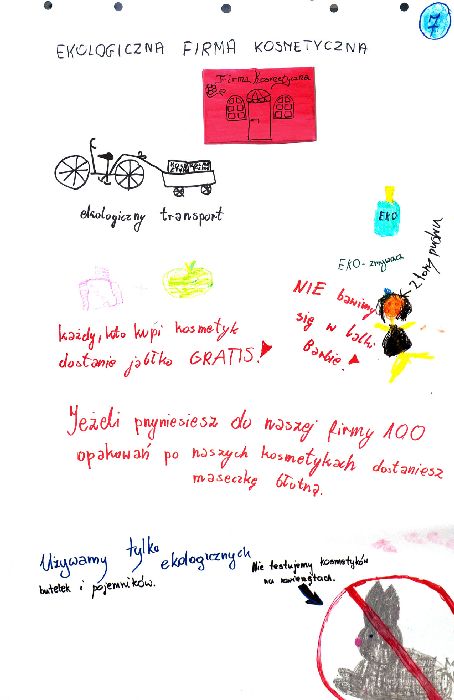 7
EKOLOGICZNA FIRMA KOSMETYCZNA
Firma Kosmetyczna
ekologiczny transport
EKO
EKO-zmywacz
NIE bawimy
się w lalki
Barbie!
każdy, kto kupi kosmetyk
dostanie jabłko GRATIS!
Jeżeli przyniesiesz do naszej firmy 100
opakowań po naszych kosmetykach dostaniesz
maseczkę błotną.
Używamy tylko ekologicznych
butelek i pojemników.
Nie testujemy kosmetyków
na zwierzętach.